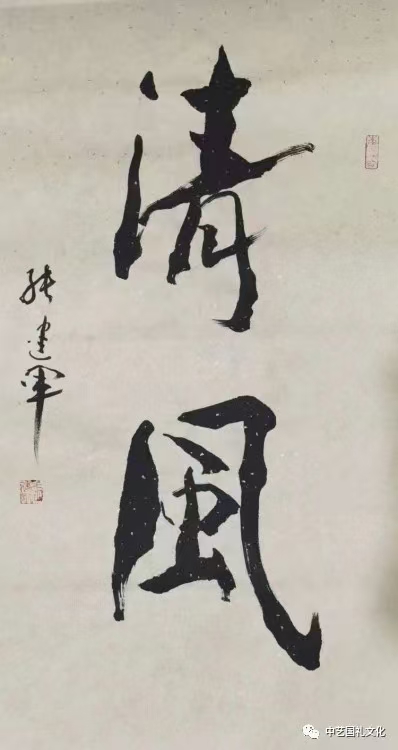 清風
张建军
中艺国礼文化